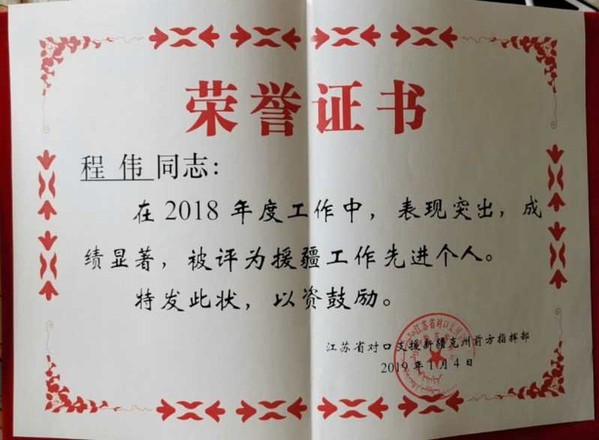 荣誉证书
程伟同志：
在2018年度工作中，表现突出，成
绩显著，被评为援疆工作先进个人。
特发此状，以资鼓励。
江苏省对口支援新疆克州前方指挥部
2019年1月4日